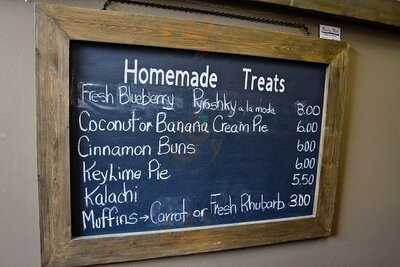 Homemade Treats
Fresh Blueberry Pyroshky a la mode 8.00
Coconut or Banana Cream Pie 6.00
Cinnamon Buns 6.00
Key Lime Pie 6.00
Kalachi 5.50
Muffins → Carrot or Fresh Rhubarb 3.00